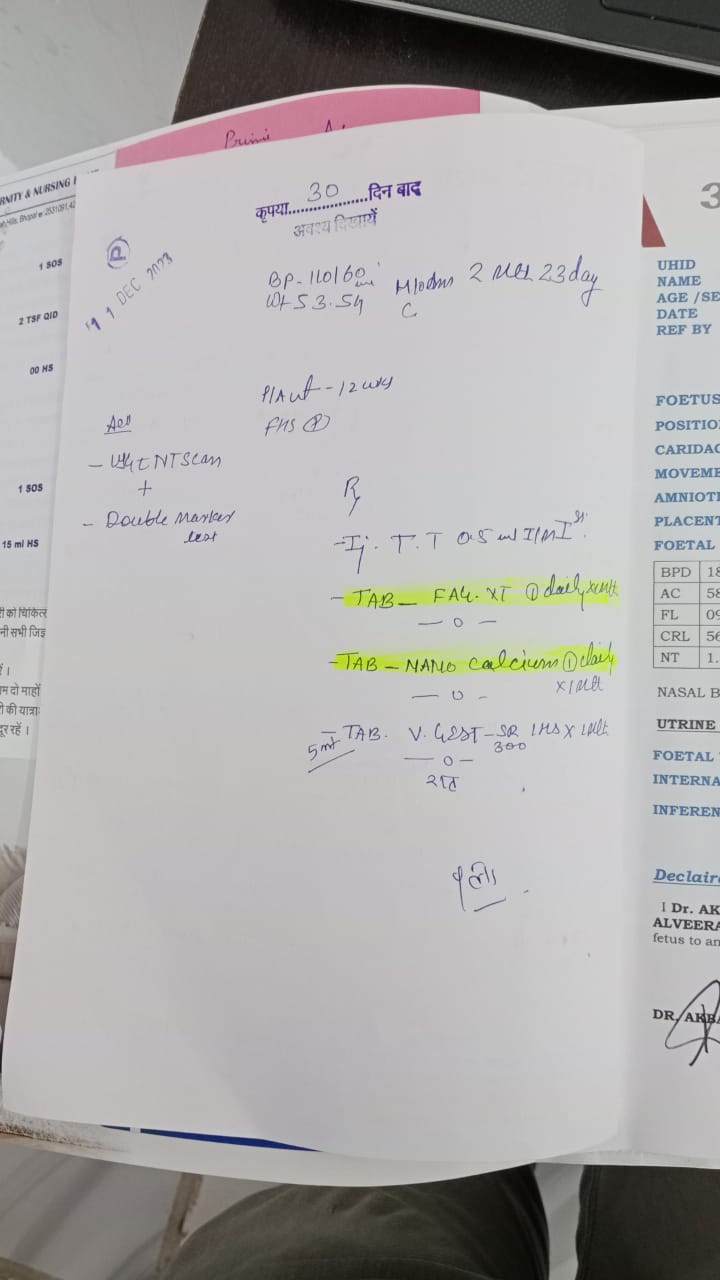 Primi
RNITY & NURSING
Hills, Bhopal
1 SOS
2 TSF QID
00 HS
1 SOS
15 ml HS
री को चिकित्स
नी सभी जिज्ञ
हैं ।
म दो माहों
की यात्रा
दूर रहें ।
कृपया 30 दिन बाद
अवश्य दिखायें
P
11 DEC 2023
BP-110/60
Wt 53.54
2 Mth 23 day
C
P/A ut - 12 wks
FHS
Adv
- NT Scan
+
- Double Marker
test
Rx
- Ij. T.T 0.5 ml I/M I st.
- TAB - XT 1 daily x 1 Mth
— 0 —
- TAB - NANO Calcium 1 daily
x 1 Mth
— 0 —
- TAB. V. GEST - SR 1 HS x 1 Mth
300
— 0 —
रात
3
UHID
NAME
AGE /SE
DATE
REF BY
FOETUS
POSITIO
CARIDAC
MOVEME
AMNIOTI
PLACENT
FOETAL
BPD 18
AC 58
FL 09
CRL 56
NT 1.
NASAL B
UTRINE
FOETAL
INTERNA
INFEREN
Declaire
I Dr. AK
ALVEERA
fetus to an
DR. AKBA